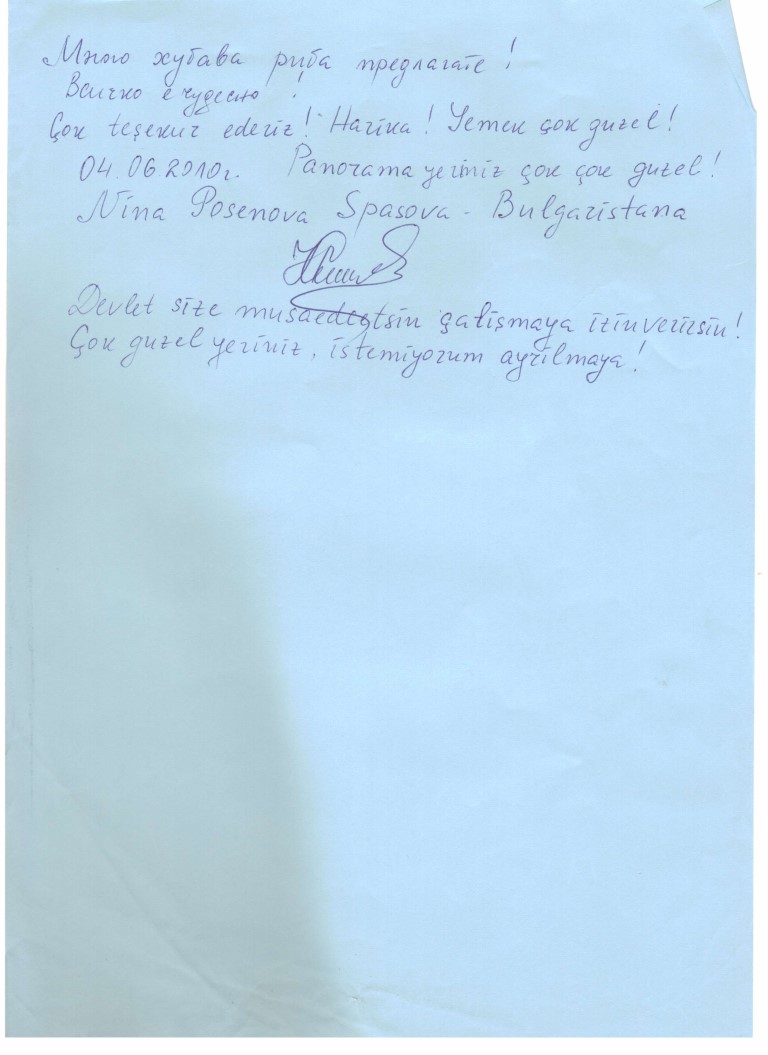 Много хубава риба предлагате!
Всичко е чудесно!
Çok teşekur ederiz! Harika! Yemek çok guzel!
04.06.2010г. Panorama yeriniz çok çok guzel!
Nina Posenova Spasova - Bulgaristana
Devlet size musaedeetsin çalişmaya izinverirsin!
Çok guzel yeriniz, istemiyorum ayrilmaya!